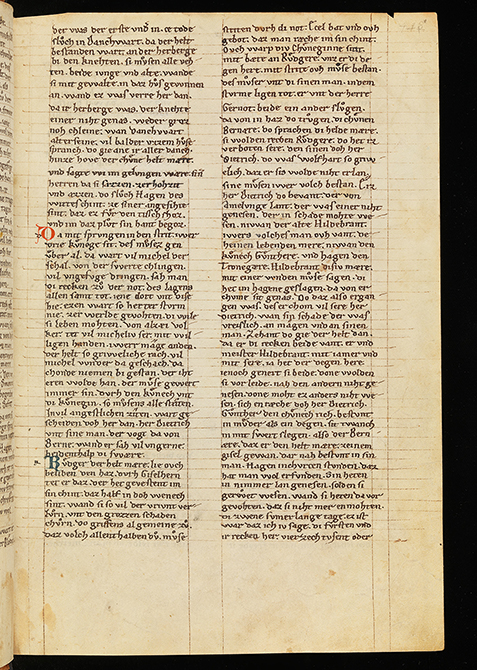 der was der erste und in ce tode
sluch in Danchwart. da der helt
bestanden wart. an der herberge
bi den knehten. si musen alle veh
ten. beide iunge und alte. wande
si mit gewalte. in daz hus gewunnen
an. wand ez was verre her dan.
da ir herberge was. der knehte
einer niht genas. weder groz
noh chleine. wan Danchwart
alterseine. vil bilder uzem huse
spranch. do gie ane ir aller danch.
hinze hove der chune helt mære.
und sagte wi im gelungen wære. sin
herren da si sizzen. zer hohzit
und azzen. do sluch Hagen des
wirtes chint. ze siner angesihte
sint. daz ez fur den tisch schoz.
und im daz plut sin hant begoz.
Da mit sprungen in den strit. wær
die kunige sit. des musez gen
uber al. da wart vil michel der
schal. von der swerte chlingen.
vil ungefuge dringen. sah man
di recken zu der not. des lagens
allen samt tot. iene dort unt dise
hie. ezen wart so herter sturm
nie. zer werlde gevohten. di wile
si leben mohten. von alzet vol
ker tet vil michel mit wil
ligen handen. wert mage anden.
der helt so grimmeliche rach. vil
michel wunder da geschach. da
chonde niemen bi gestan. der iht
eren wolde han. der muse gewert
immer sin. durh den kunech unt
di kunegin. so musens alle striten.
In vil angestlichen ziten. wart ge
scheiden von her dan. her Dietrich
unt sine man. der vogt da von
Berne. wand er sah vil ungerne.
bedenthalp di swære.
Rudger der helt mære. lie ouch
beliben den haz. durh Giselhern
tet er daz. der het gevestent im
sin chint. daz half in doh wenech
sint. wand si so vil der vriunt ver
lurn. unt den grozzen schaden
churn. do griffens al gemeine zu.
daz volch allenthalben do. muse
striten durh di not. Ecel bat und ouh
gebot. daz man ræche im sin chint.
Ouh warp div Chuneginne sint.
mit bate an Rudgere. unz er di de
gen here. mit strite ouh muse bestan.
des muser unt di sinen man. in dem
sturme ligen tot. er unt der herre
Gernot. beide ein ander slugen.
da von in haz do trugen. di chunen
Bernære. do sprachen di helde mære.
si wolden rechen Rudgere. do het iz
verboten sere. den sinen doh her
Dietrich. do was Wolfhart so grim
elich. daz er sis wolde niht erlan.
sine musen iwer volch bestan. E iz
her Dietrich do bevant. der von
Amelunge lant. der was einer niht
genesen. der in schade mohte we
sen. niwan der alte Hildebrant.
iwers volches man ouh vant. de
heinen lebenden mere. niwan den
kunech Gunthere. und Hagen den
Tronegære. Hildebrant disiu mære.
mit einer wnden muse sagen. di
het im Hagene geslagen. da von er
chume sit genas. Do daz also ergan
gen was. des erchom vil sere her
Dietrich. wan sin schade der was
vreislich. an magen und an sinen
man. Zehant do gie der helt dan.
da er di recken beide vant. er und
meister Hildebrant. mit iamer und
mit sere. ia het der degen here.
ienoch genert si beide. done wolden
si vor leide. nah den andern niht ge
nesen. done moht ez anders niht we
sen. sich enræche doh her Dietrich.
Gunther den chunech rich. bestunt
in muder als ein degen. sit twanch
in mit swert slegen. also der Bern
ære. daz er den helt mære. zeinem
gisel gewan. dar nah bestunt in sin
man. Hagen mehvren stunden. daz
hat man wol erfunden. Sin heren
in nimmer lan genesen. solden si
gerwet wesen. wand si heten da vor
gevohten. daz si niht mer en mohten.
di zwene sumer lange tage. ez ist
war daz ich iu sage. di fursten und
ir recken her. vierzech tusent oder